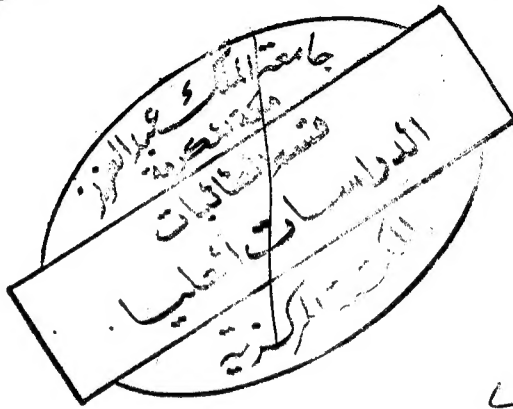 جامعة الملك عبد العزيز
مكة المكرمة
قسم الطالبات
الدراسات العليا
المكتبة المركزية